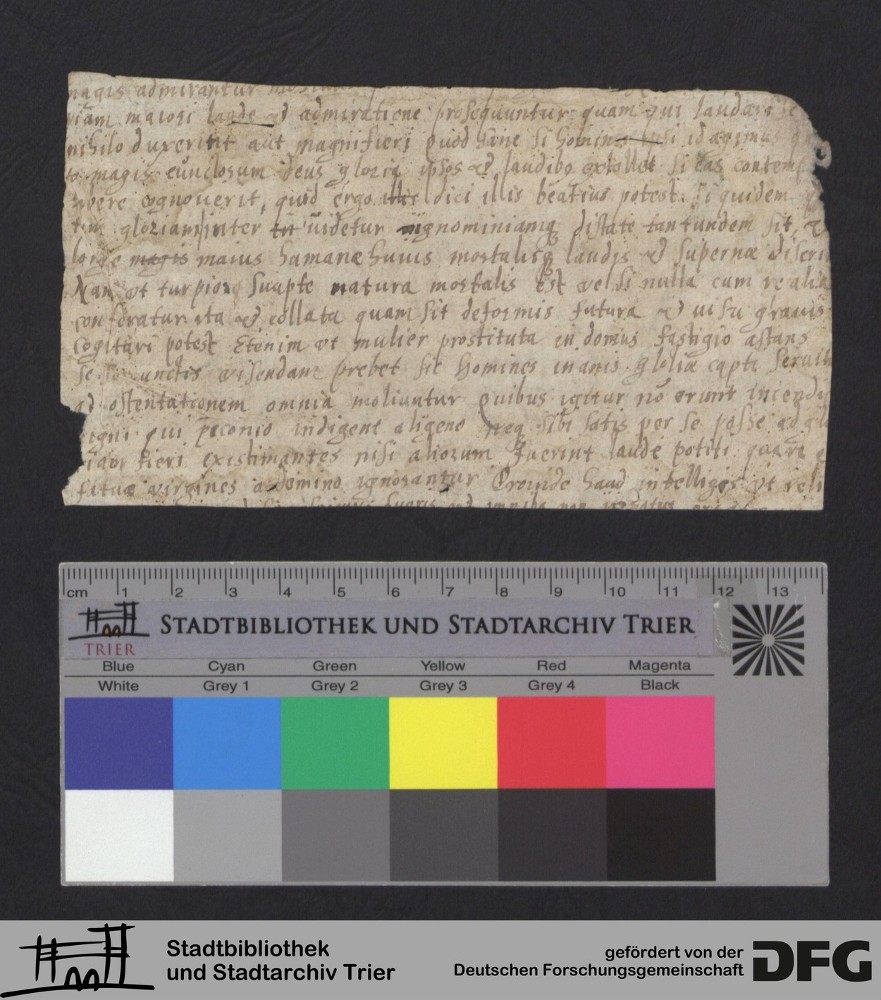 magis admirantur
maiori laude & admiratione prosequuntur quam qui laudare
nihilo duxerint aut magnifieri quod sane si homines nisi id agimus
magis cunctosum deus gloria ipsos & laudibo extollet si eas contem
cognoverit, quid ergo illis dici illis beatius potest. Si quidem
gloriam inter tri uidetur ignominiamq distate tantundem sit,
longe magis maius humanæ huius mortalisq laudis & supernæ discri
Nam ut turpior suapte natura mortalis est vel si nulla cum re alia
conferatur ita & collata quam sit deformis futura & uisu gravis
cogitari potest Etenim ut mulier prostituta in domus fastigio astans
se cunctis visendam prebet sic homines inanis gloriæ capti
ad ostentationem omnia moliuntur quibus igitur no erunt incendi
igni qui peconio indigent aligeno neq sibi satis per se posse ad
fieri existimantes nisi aliorum fuerint laude potiti quare
fatuæ virgines a domino ignorantur Proinde haud intelliges ut reli
cm 1 2 3 4 5 6 7 8 9 10 11 12 13
TRIER
STADTBIBLIOTHEK UND STADTARCHIV TRIER
Blue Cyan Green Yellow Red Magenta
White Grey 1 Grey 2 Grey 3 Grey 4 Black
Stadtbibliothek
und Stadtarchiv Trier
gefördert von der
Deutschen Forschungsgemeinschaft
DFG